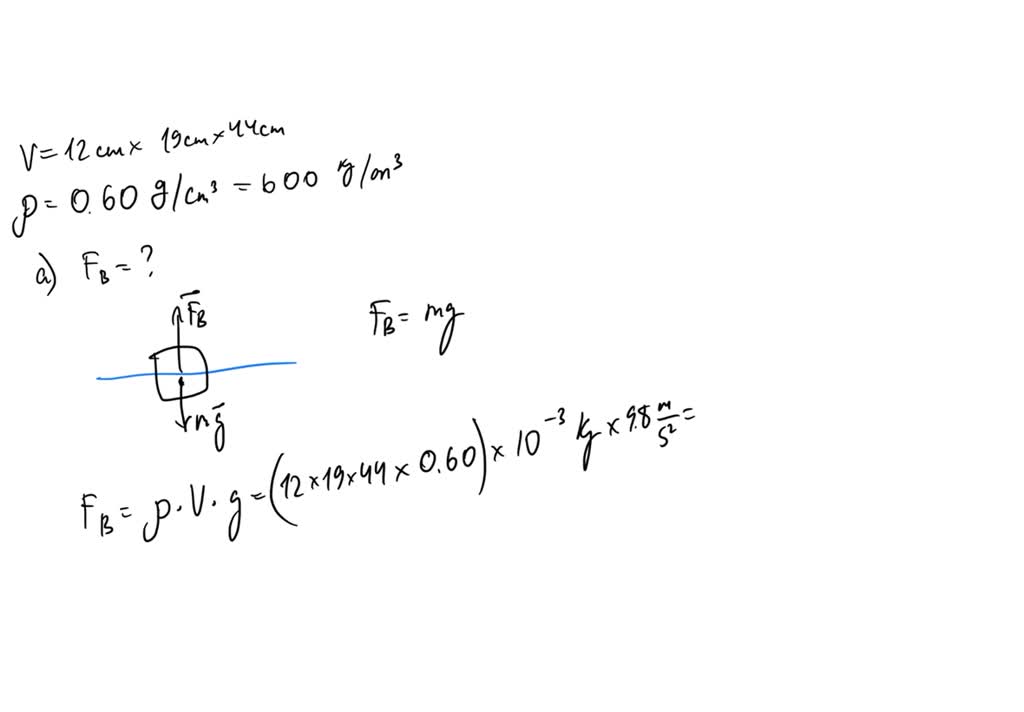 V = 12 cm × 19cm × 44cm
ρ = 0.60 g/cm³ = 600 kg/cm³
a) F_B = ?
F_B
F_B = mg
mg
F_B = ρ · V · g = (12 × 19 × 44 × 0.60) × 10⁻³ kg × 9.8 m/s² =